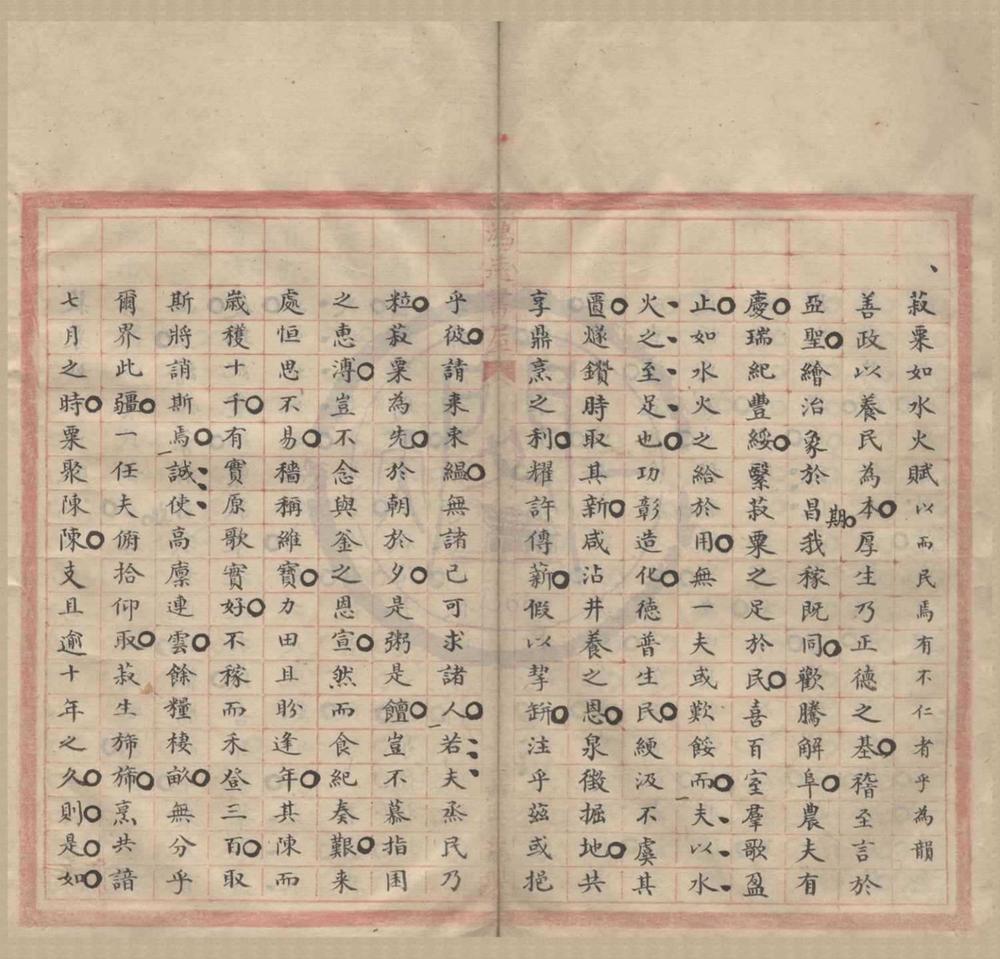 菽粟如水火賦以而民焉有不仁者乎為韻
善政以養民為本厚生乃正德之基稽至言於
亞聖繪治象於昌期我稼既同歡騰解阜農夫有
慶瑞紀豐綏繫菽粟之足於民喜百室羣歌盈
止如水火之給於用無一夫或歎餒而夫以水
火之至足也功彰造化德普生民綆汲不虞其
匱燧鑽時取其新咸沾井養之恩泉徵掘地共
享鼎烹之利耀許傳薪假以挈缾注乎茲或挹
乎彼請來束緼無諸己可求諸人若夫烝民乃
粒菽粟為先於朝於夕是粥是饘豈不慕指囷
之惠溥豈不念與釜之恩宣然而食紀奏艱來
處恒思不易穡稱維寶力田且盼逢年其陳而
歲穫十千有實原歌實好不稼而禾登三百取
斯將誚斯焉誠使高廪連雲餘糧棲畝無分乎
爾界此疆一任夫俯拾仰取菽生斾斾烹共諳
七月之時粟聚陳陳支且逾十年之久則是如